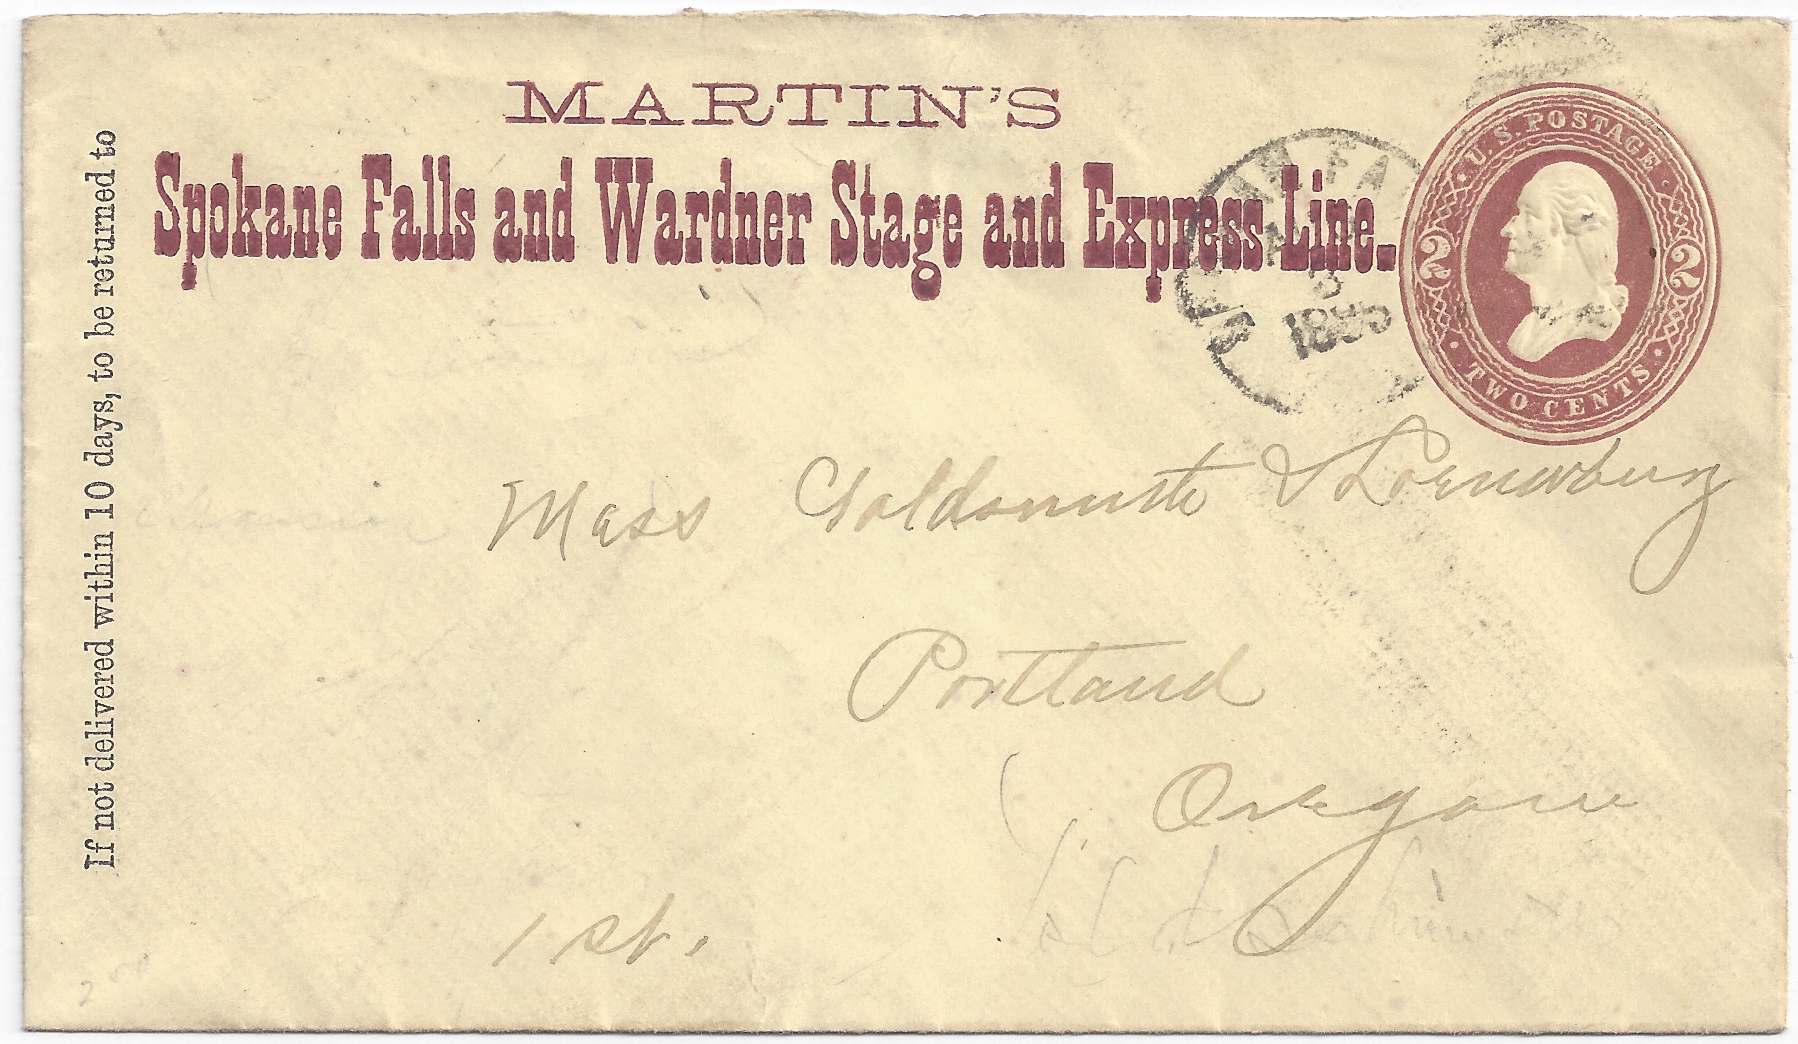 MARTIN'S
Spokane Falls and Wardner Stage and Express Line.
If not delivered within 10 days, to be returned to
U.S. POSTAGE
2 2
TWO CENTS
Mess Goldsmith & Loewenberg
Portland
Oregon
1 st.